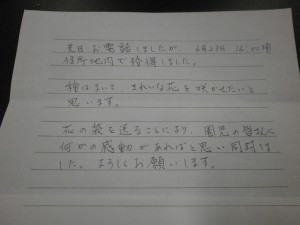 先日お電話しましたが、6月23日 16:00頃
住所地内で捨得しました。
種をまいて、きれいな花を咲かせたいと
思います。
花の袋を送ることにより、園児の皆さんに
何かの感動があればと思い同封しまし
た。よろしくお願いします。